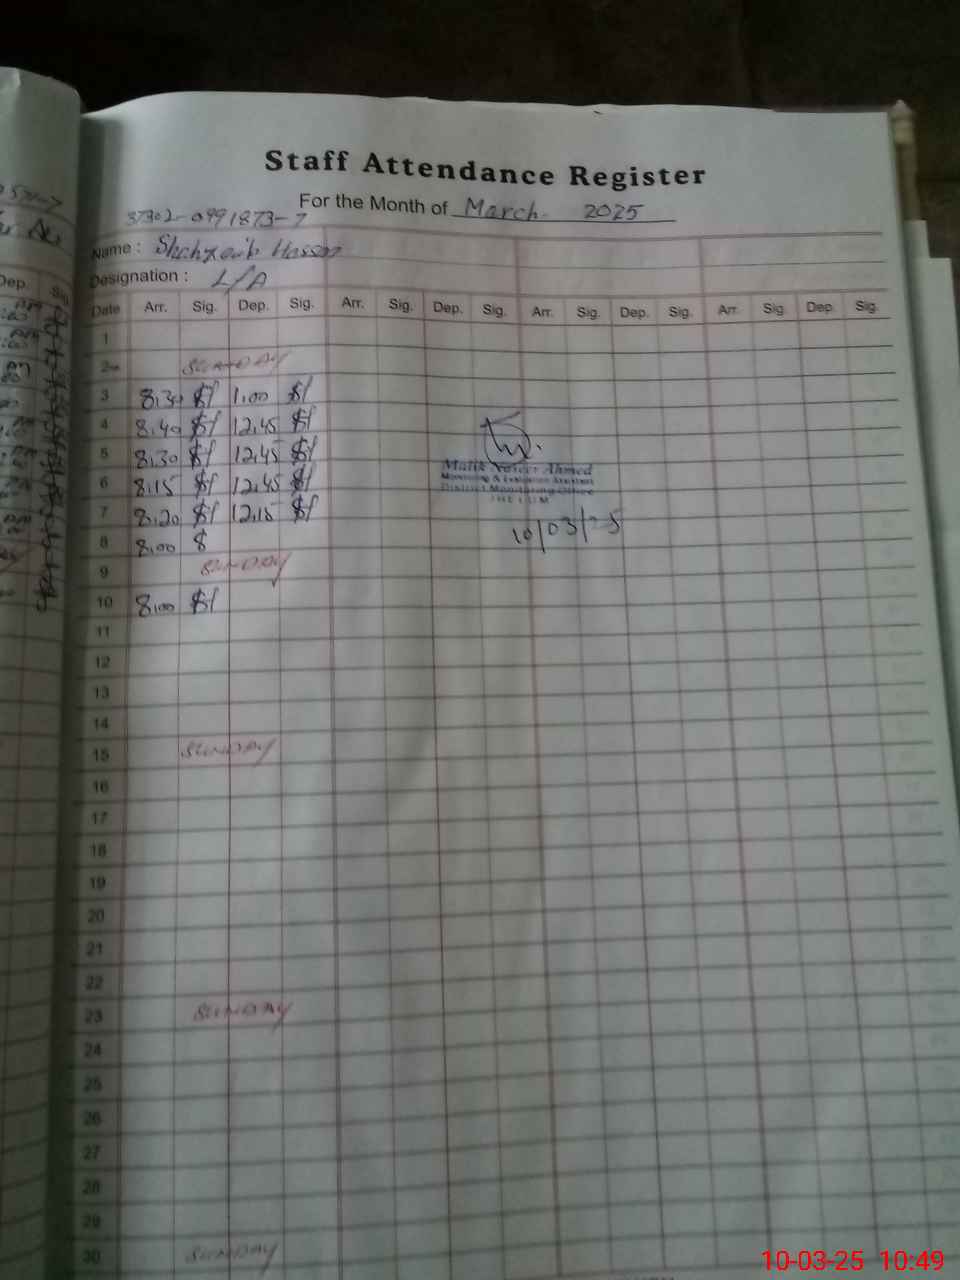 Staff Attendance Register
For the Month of March 2025
37302-0991873-7
Name : Shahzaib Hassan
Designation : L/A
Date Arr. Sig. Dep. Sig. Arr. Sig. Dep. Sig. Arr. Sig. Dep. Sig. Arr. Sig. Dep. Sig.
1
2 SUNDAY
3 8.30 1.00
4 8.40 12.45
5 8.30 12.45
6 8.15 12.45
7 8.20 12.15
8 8.00
9 SUNDAY
10 8.00
11
12
13
14
15 SUNDAY
16
17
18
19
20
21
22
23 SUNDAY
24
25
26
27
28
29
30 SUNDAY
Malik Naseer Ahmed
Monitoring & Evaluation Assistant
District Monitoring Office
JHELUM
10/03/25
10-03-25 10:49